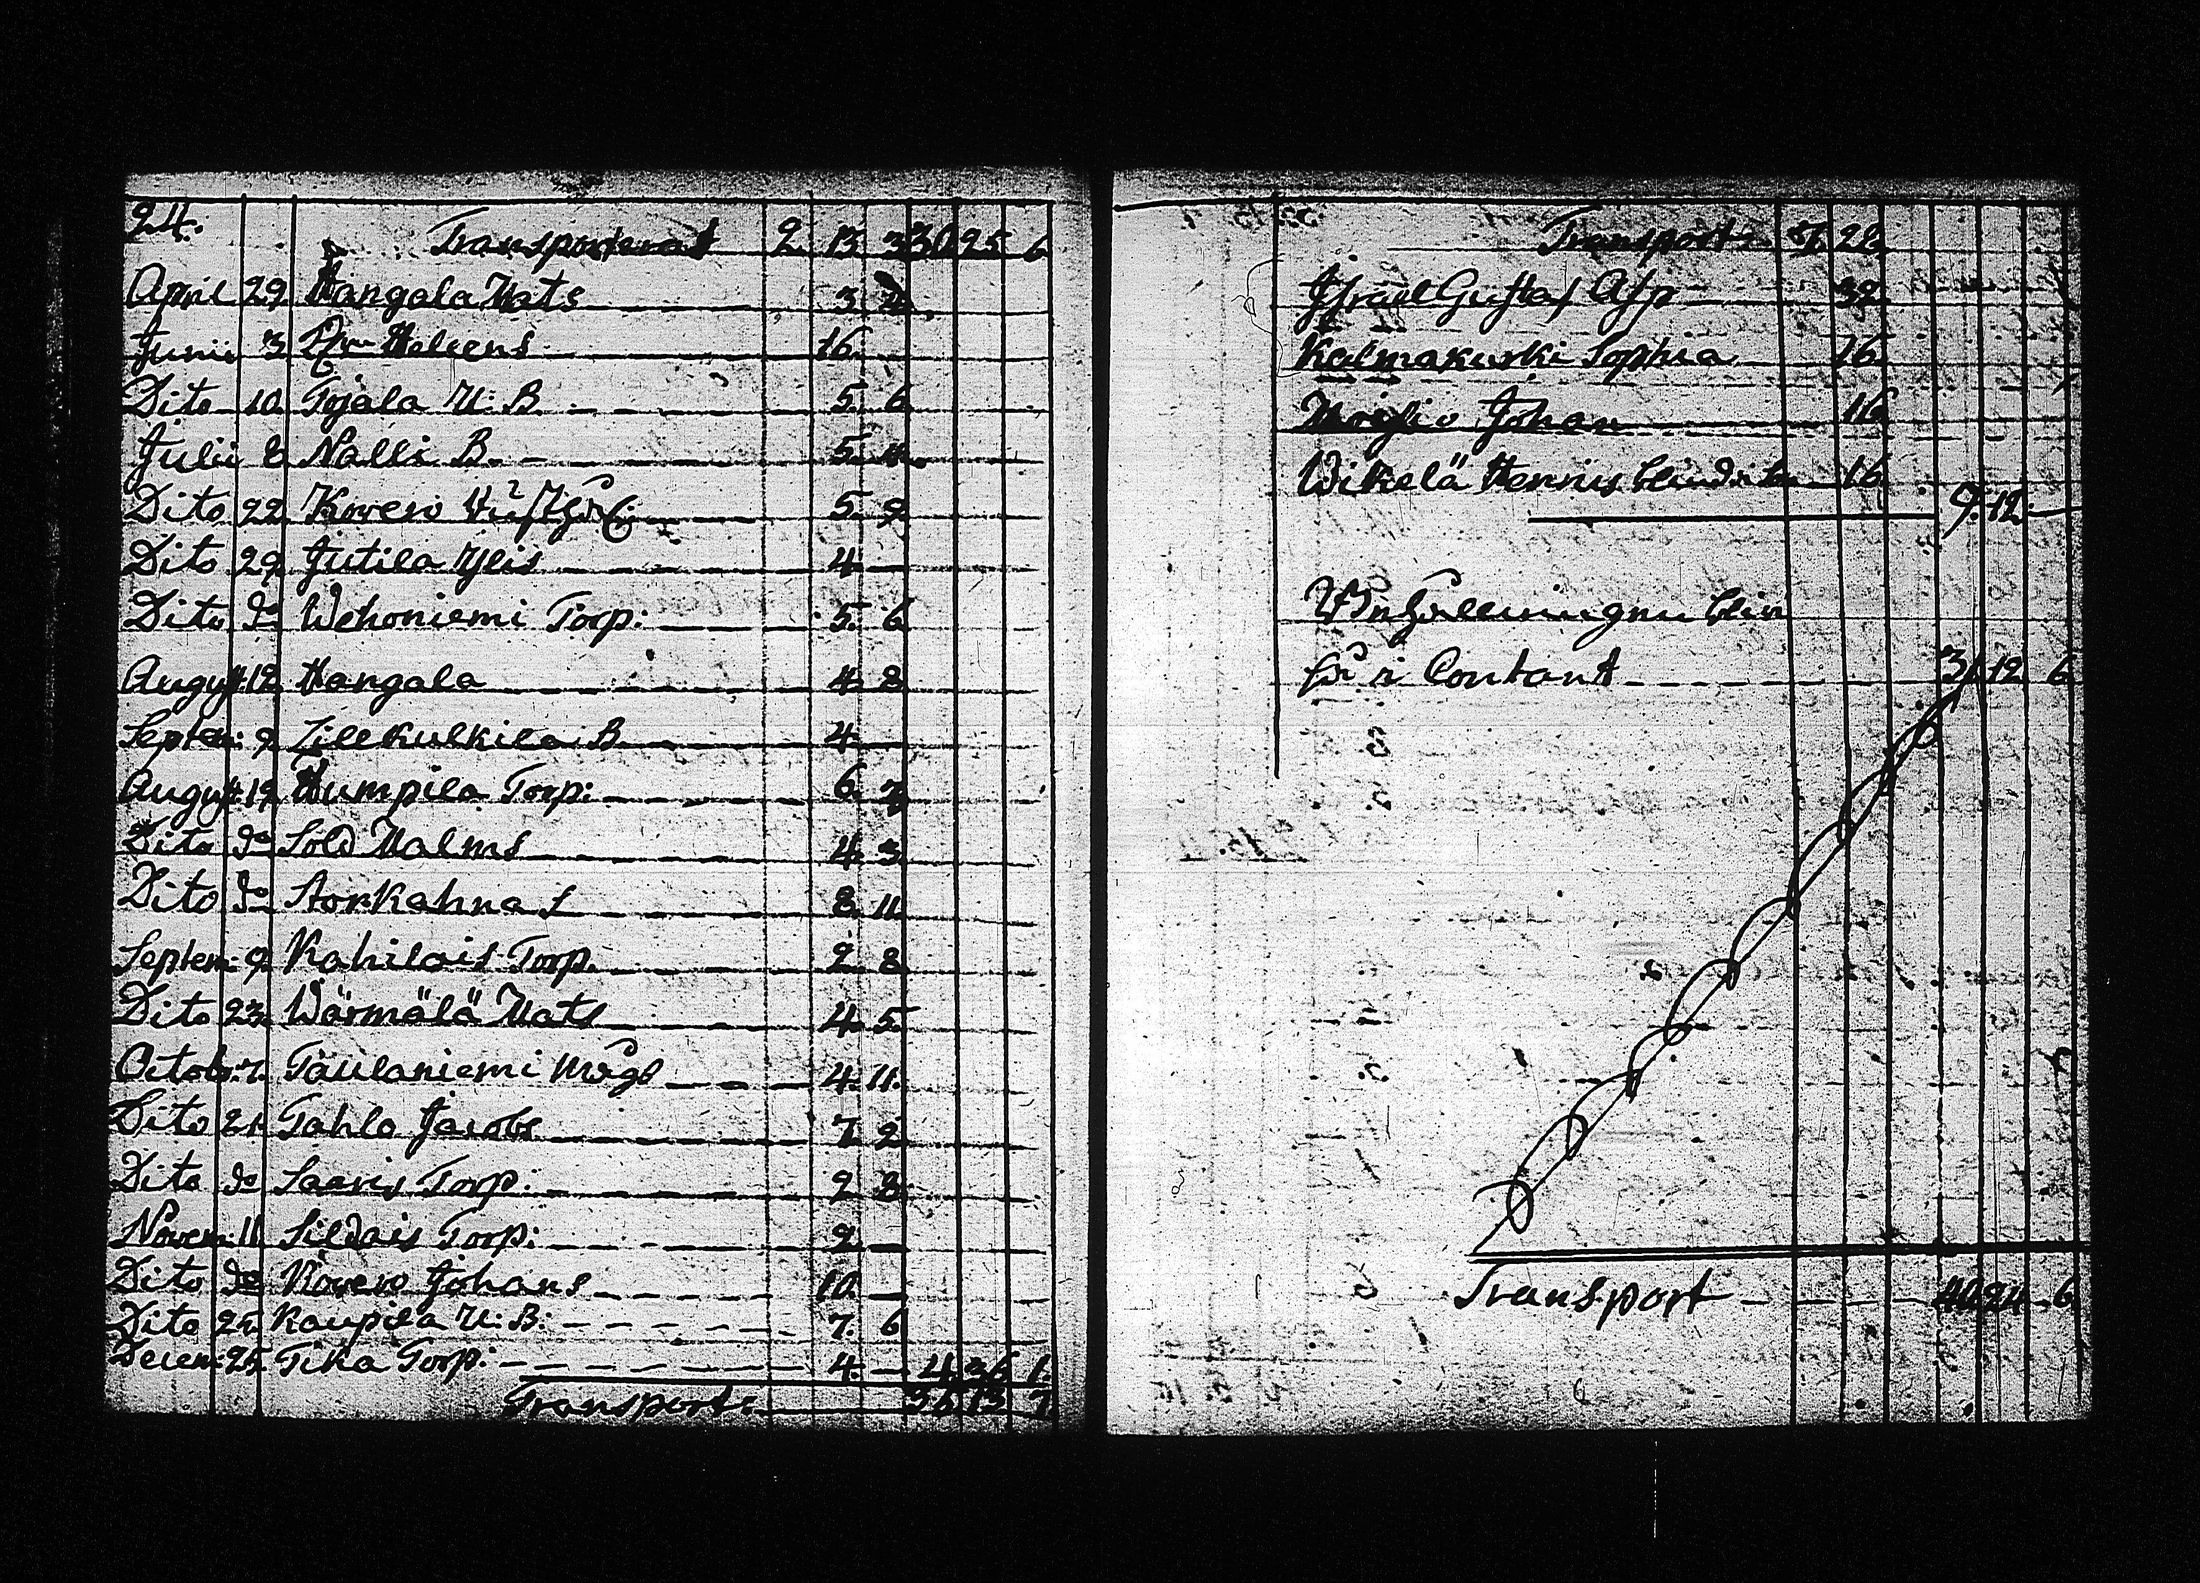 24.
Transporterat 2. 13. 3 30 25 6
April 29 Hangala Mats 3
Junii 3 Helsens 16. —
Dito 10. Tojala U: B. 5. 6
Julii 8 Nalli B. 5. 4.
Dito 22. Korero 5. 9.
Dito 29. Jutila Ylis 4 —
Dito do Wehoniemi Torp: 5. 6
August: 12. Hangala 4. 8
Septem: 9. Lillkulkila B. 4. —
August: 19. Humpila Torp: 6. 7
Dito do Sold Malms 4. 3.
Dito do Storkahna S 8. 11.
Septem: 9. Kahilais Torp. 2. 8.
Dito 23. Wärmälä Mats 4. 5.
Octob: 7. Taulaniemi 4. 11.
Dito 21. Tahla Jacobs 7. 2
Dito do Saaris Torp: 2. 8
Novem: 11. Sildais Torp: 2. —
Dito do Korero Johans 10. —
Dito 25. Kaupila U: B: 7. 6
Decem: 25. Tika Torp: 4. — 4. 36 1.
Transport: 35 13 7
Transport: 57. 28.
Israel Gustaf Asp 32.
Kalmakurski Sophia 16.
Johan 16
Wikelä Hennis 16
9. 12. —
blir
i Contant 31. 12 6
Transport 40. 24. 6